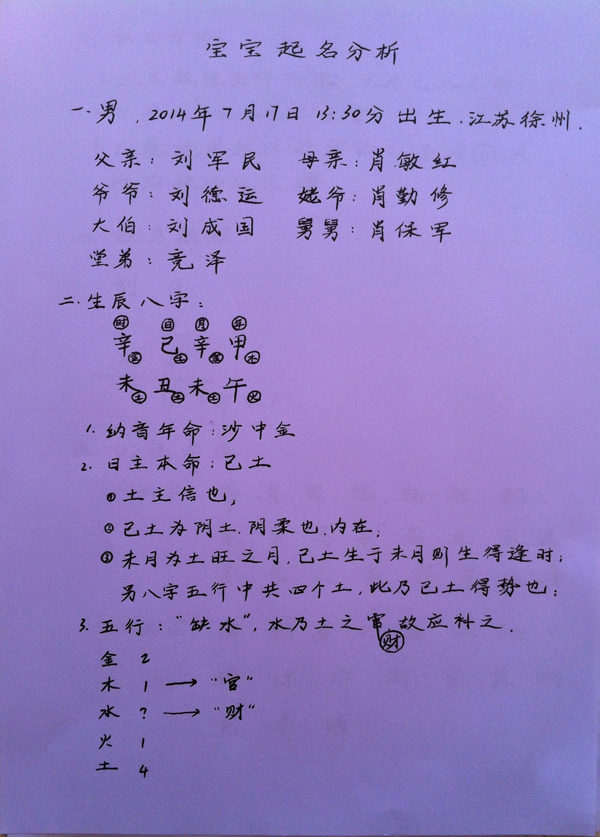 宝宝起名分析
一.男,2014年7月17日 13:30分出生.江苏徐州.
父亲:刘军民 母亲:肖敏红
爷爷:刘德运 姥爷:肖勤修
大伯:刘成国 舅舅:肖保军
堂弟:竞泽
二.生辰八字:
时 日 月 年
辛金 己土 辛金 甲木
未土 丑土 未土 午火
1.纳音年命:沙中金
2.日主本命:己土
①土主信也,
②己土为阴土.阴柔也.内在;
③未月为土旺之月,己土生于未月则生得逢时;
另八字五行中共四个土,此乃己土得势也;
3.五行:“缺水”,水乃土之官,故应补之.
财
金 2
木 1 → “官”
水 ? → “财”
火 1
土 4